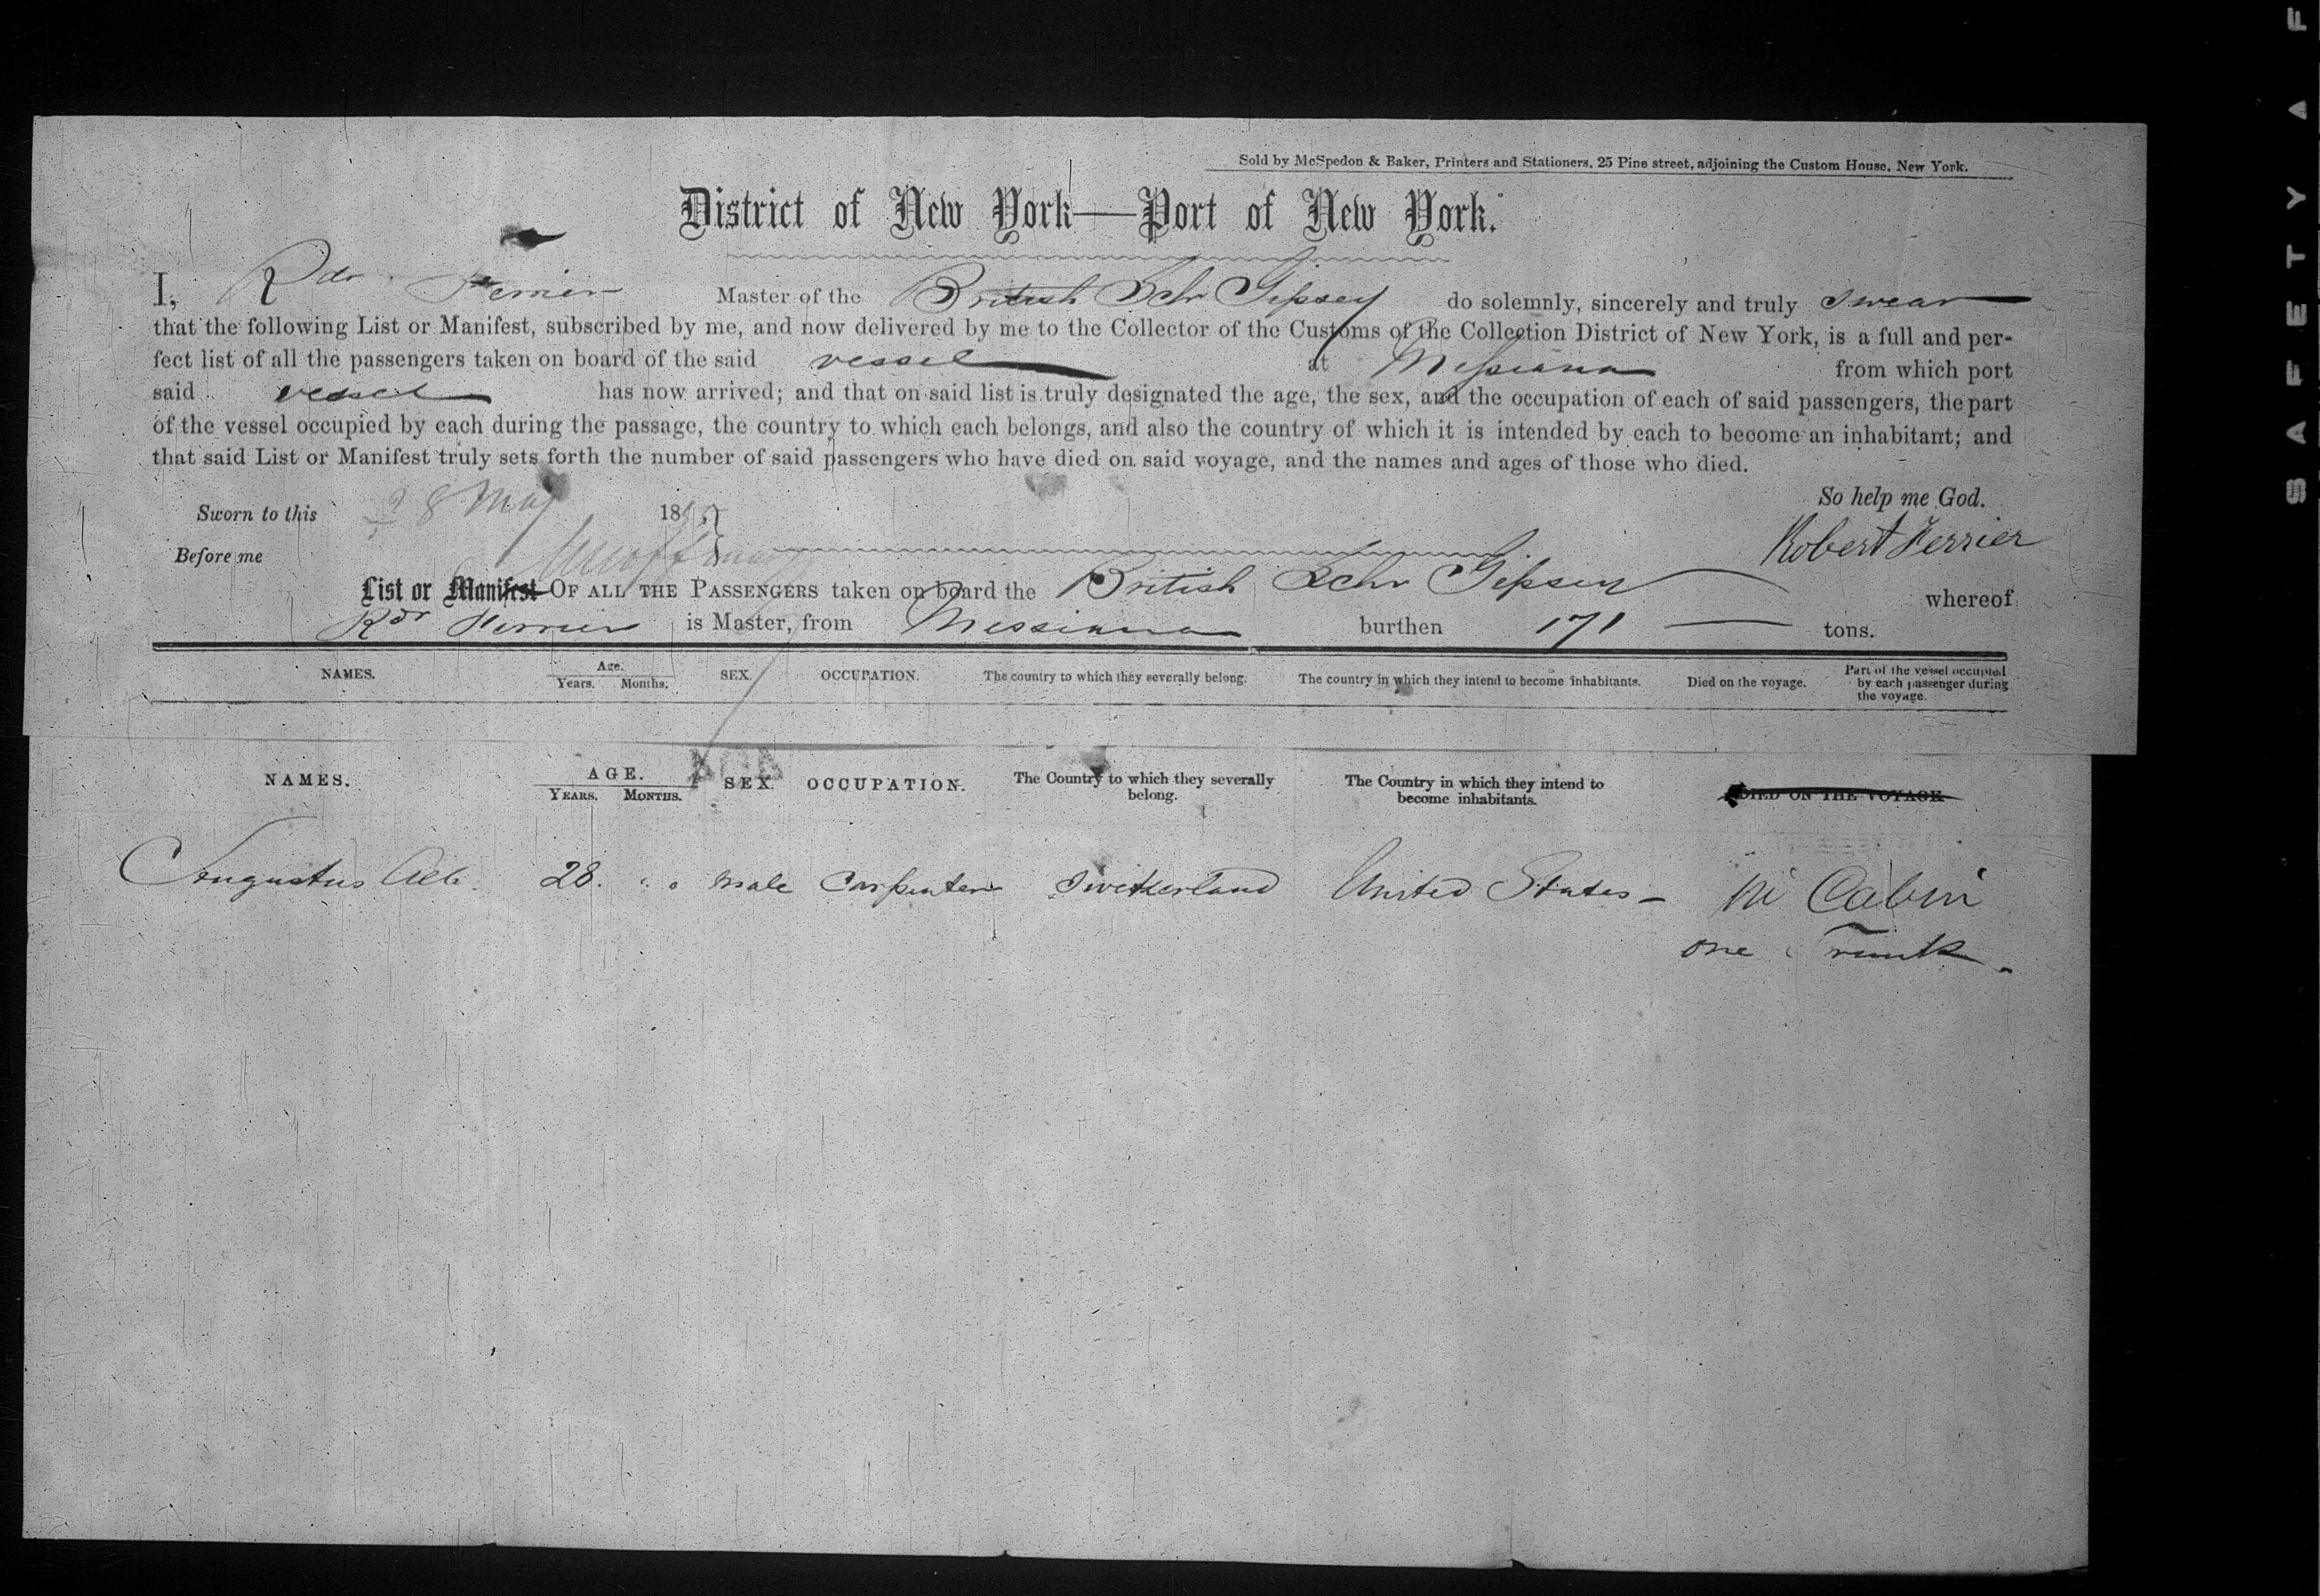 Sold by McSpedon & Baker, Printers and Stationers, 25 Pine street, adjoining the Custom House, New York.
District of New York—Port of New York.
I, Rdr Ferrier Master of the British Schr Gipsey do solemnly, sincerely and truly swear
that the following List or Manifest, subscribed by me, and now delivered by me to the Collector of the Customs of the Collection District of New York, is a full and per-
fect list of all the passengers taken on board of the said vessel at Messiana from which port
said vessel has now arrived; and that on said list is truly designated the age, the sex, and the occupation of each of said passengers, the part
of the vessel occupied by each during the passage, the country to which each belongs, and also the country of which it is intended by each to become an inhabitant; and
that said List or Manifest truly sets forth the number of said passengers who have died on said voyage, and the names and ages of those who died.
So help me God.
Sworn to this 28 May 18
Robert Ferrier
Before me
List or Manifest OF ALL THE PASSENGERS taken on board the British Schr Gipsey whereof
Rdr Ferrier is Master, from Messiana burthen 171 tons.
NAMES. Age. Years. Months. SEX. OCCUPATION. The country to which they severally belong. The country in which they intend to become inhabitants. Died on the voyage. Part of the vessel occupied by each passenger during the voyage.
NAMES. AGE. YEARS. MONTHS. SEX. OCCUPATION. The Country to which they severally belong. The Country in which they intend to become inhabitants. DIED ON THE VOYAGE
Augustus Aeb. 28. " " male Carpenter Switzerland United States - in Cabin
one Trunk.
SAFETY AF